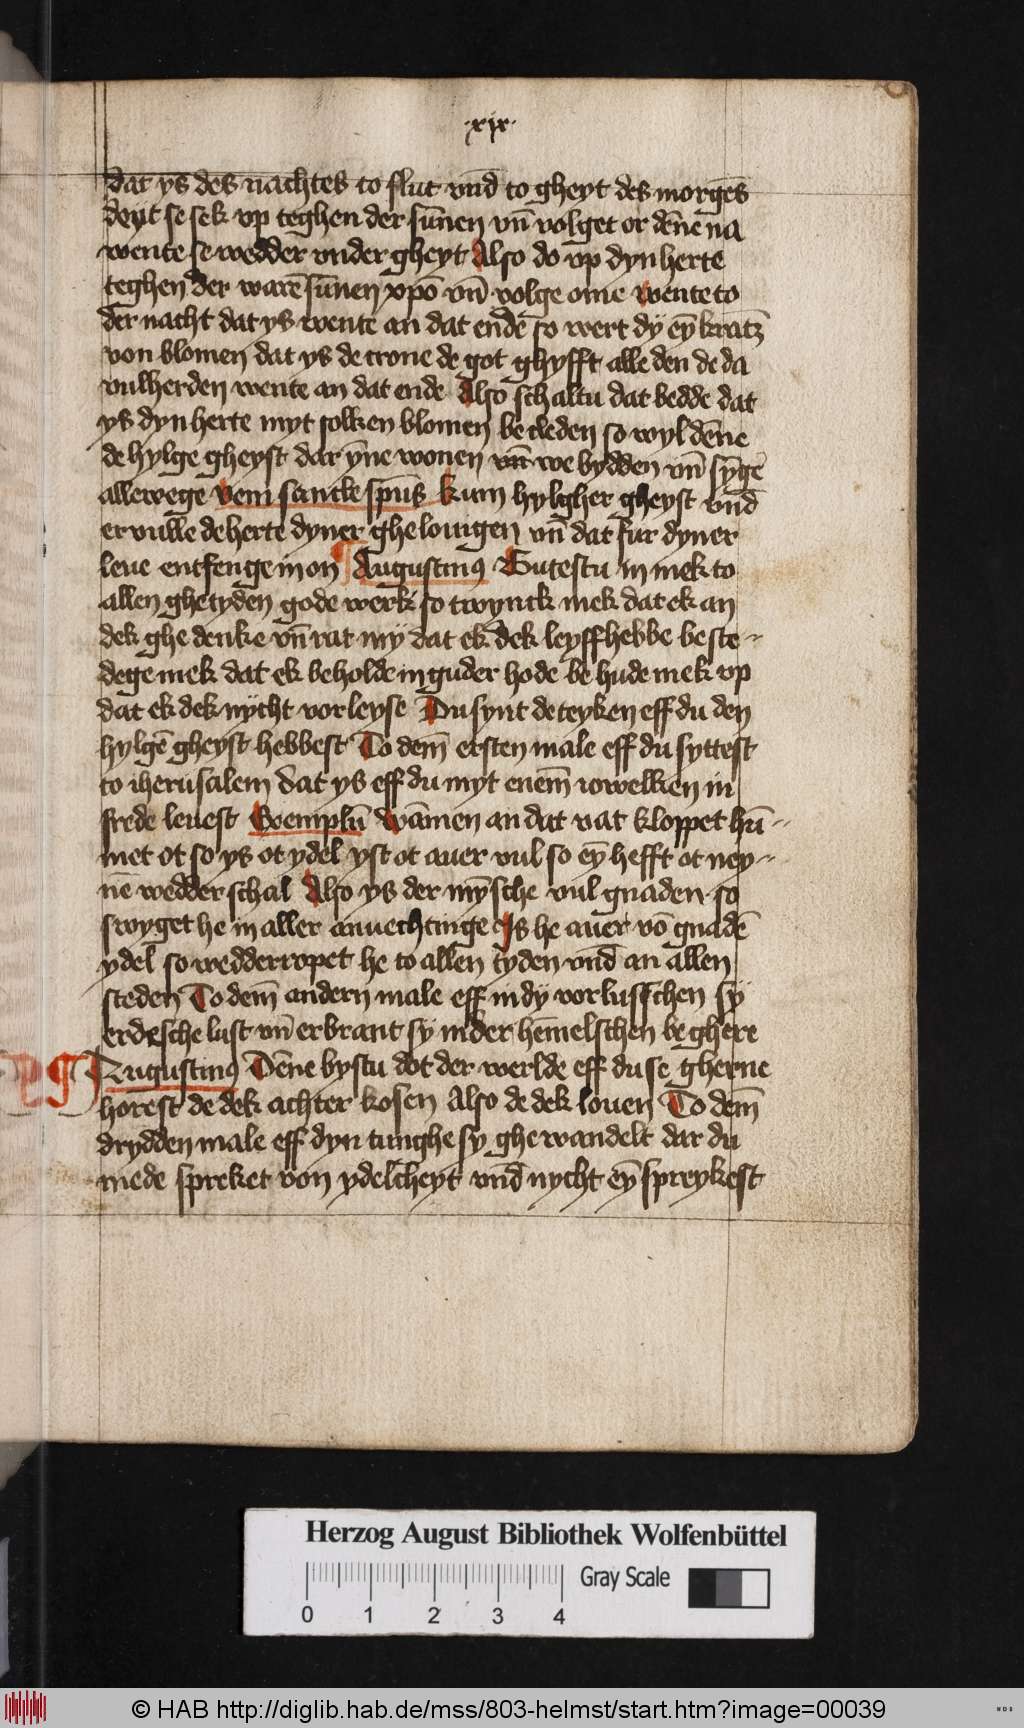 ·xix·
dat ys des nachtes to slut vnd̄ to gheyt des morgēs
deyt se sek vp teghen der sūnen vn̄ volget or dēne na
wente se wedder vnder gheyt Also do vp dyn herte
teghen der warē sūnen xpō vn̄ volge ome wente to
der nacht dat ys wente an dat ende so wert dÿ eȳ kratz
von blomen dat ys de crone de got ghyfft alle den de da
vulherden wente an dat ende Also schaltu dat bedde dat
ys dyn herte myt solken blomen be cleden so wyl dēne
de hylge gheyst dar ȳne wonen vn̄ we bydden vn̄ sȳgē
allewege veni sancte spūs kum hylgher gheyst vnd̄
ervulle de herte dyner ghelouigen vn̄ dat fur dyner
leue entfenge in on Augustinꝯ Gutestu in mek to
allen ghetyden gode werk so twynck mek dat ek an
dek ghe denke vn̄ rat mÿ dat ek dek leyff hebbe beste-
dege mek dat ek beholde in guder hode be hude mek vp
dat ek dek nÿcht vorleyse Du synt de teyken eff du den
hylgē gheyst hebbest To dem̄ ersten male eff du syttest
to iherusalem dat ys eff du myt enem̄ iowelken in
frede leuest Exemplū wāmen an dat vat kloppet hū-
met ot so ys ot ydel yst ot auer vul so eȳ hefft ot ney-
nē wedder schal Also ys der mȳsche vul gnaden so
swyget he in aller anuechtinge Is he auer vō gnadē
ydel so wedderropet he to allen tyden vnd̄ an allen
steden To dem̄ andern male eff in dÿ vorlusschen sÿ
erdesche lust vn̄ erbrant sÿ in der hēmelschen be ghere
Augustinꝯ Dēne bystu dot der werlde eff du se gherne
horest de dek achter kosen Also de dek louen To dem̄
drydden male eff dyn tunghe sy ghe wandelt dar du
mede spreket von ydelcheyt vnd̄ nycht eȳ spreykest
Herzog August Bibliothek Wolfenbüttel
Gray Scale
0 1 2 3 4
© HAB http://diglib.hab.de/mss/803-helmst/start.htm?image=00039